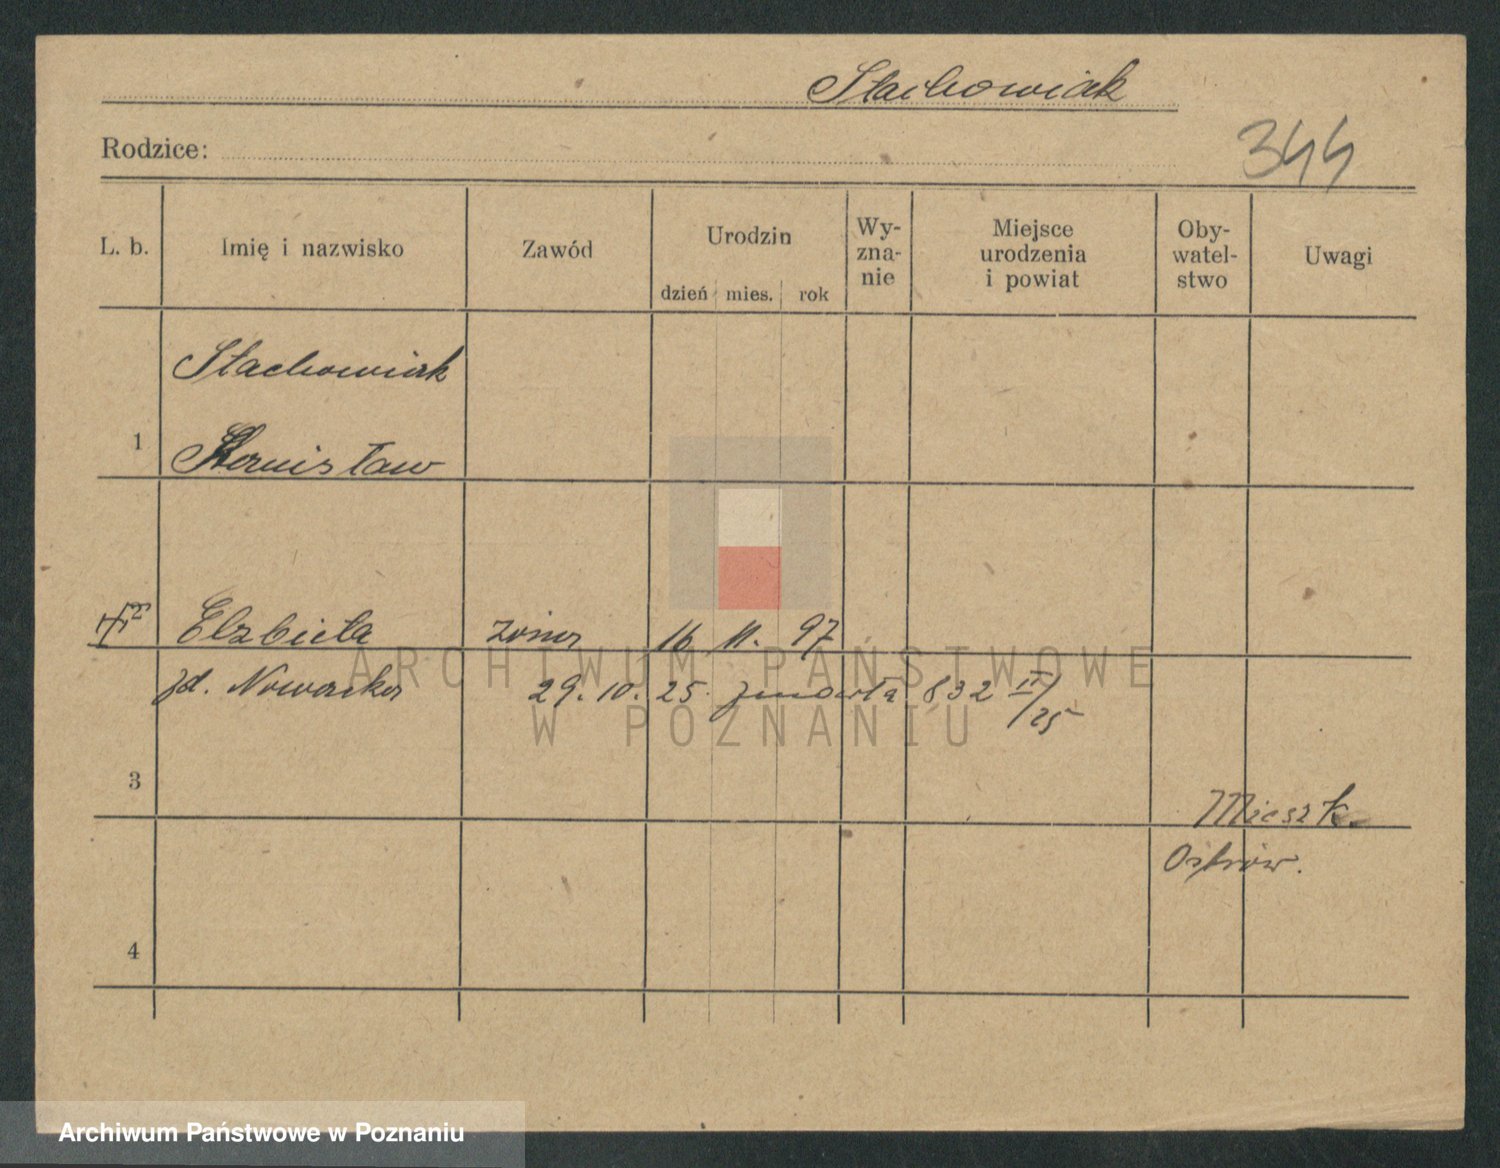 Stachowiak
Rodzice:
344
L. b. Imię i nazwisko Zawód Urodzin dzień mies. rok Wy-zna-nie Miejsce urodzenia i powiat Oby-watel-stwo Uwagi
Stachowiak
1 Stanisław
2 Elzbieta żona 16 11. 97
zd. Nowacka 29. 10. 25. zmarła 832 IV/25
3
Mieszk.
Ostrów.
4
ARCHIWUM PAŃSTWOWE
W POZNANIU
Archiwum Państwowe w Poznaniu